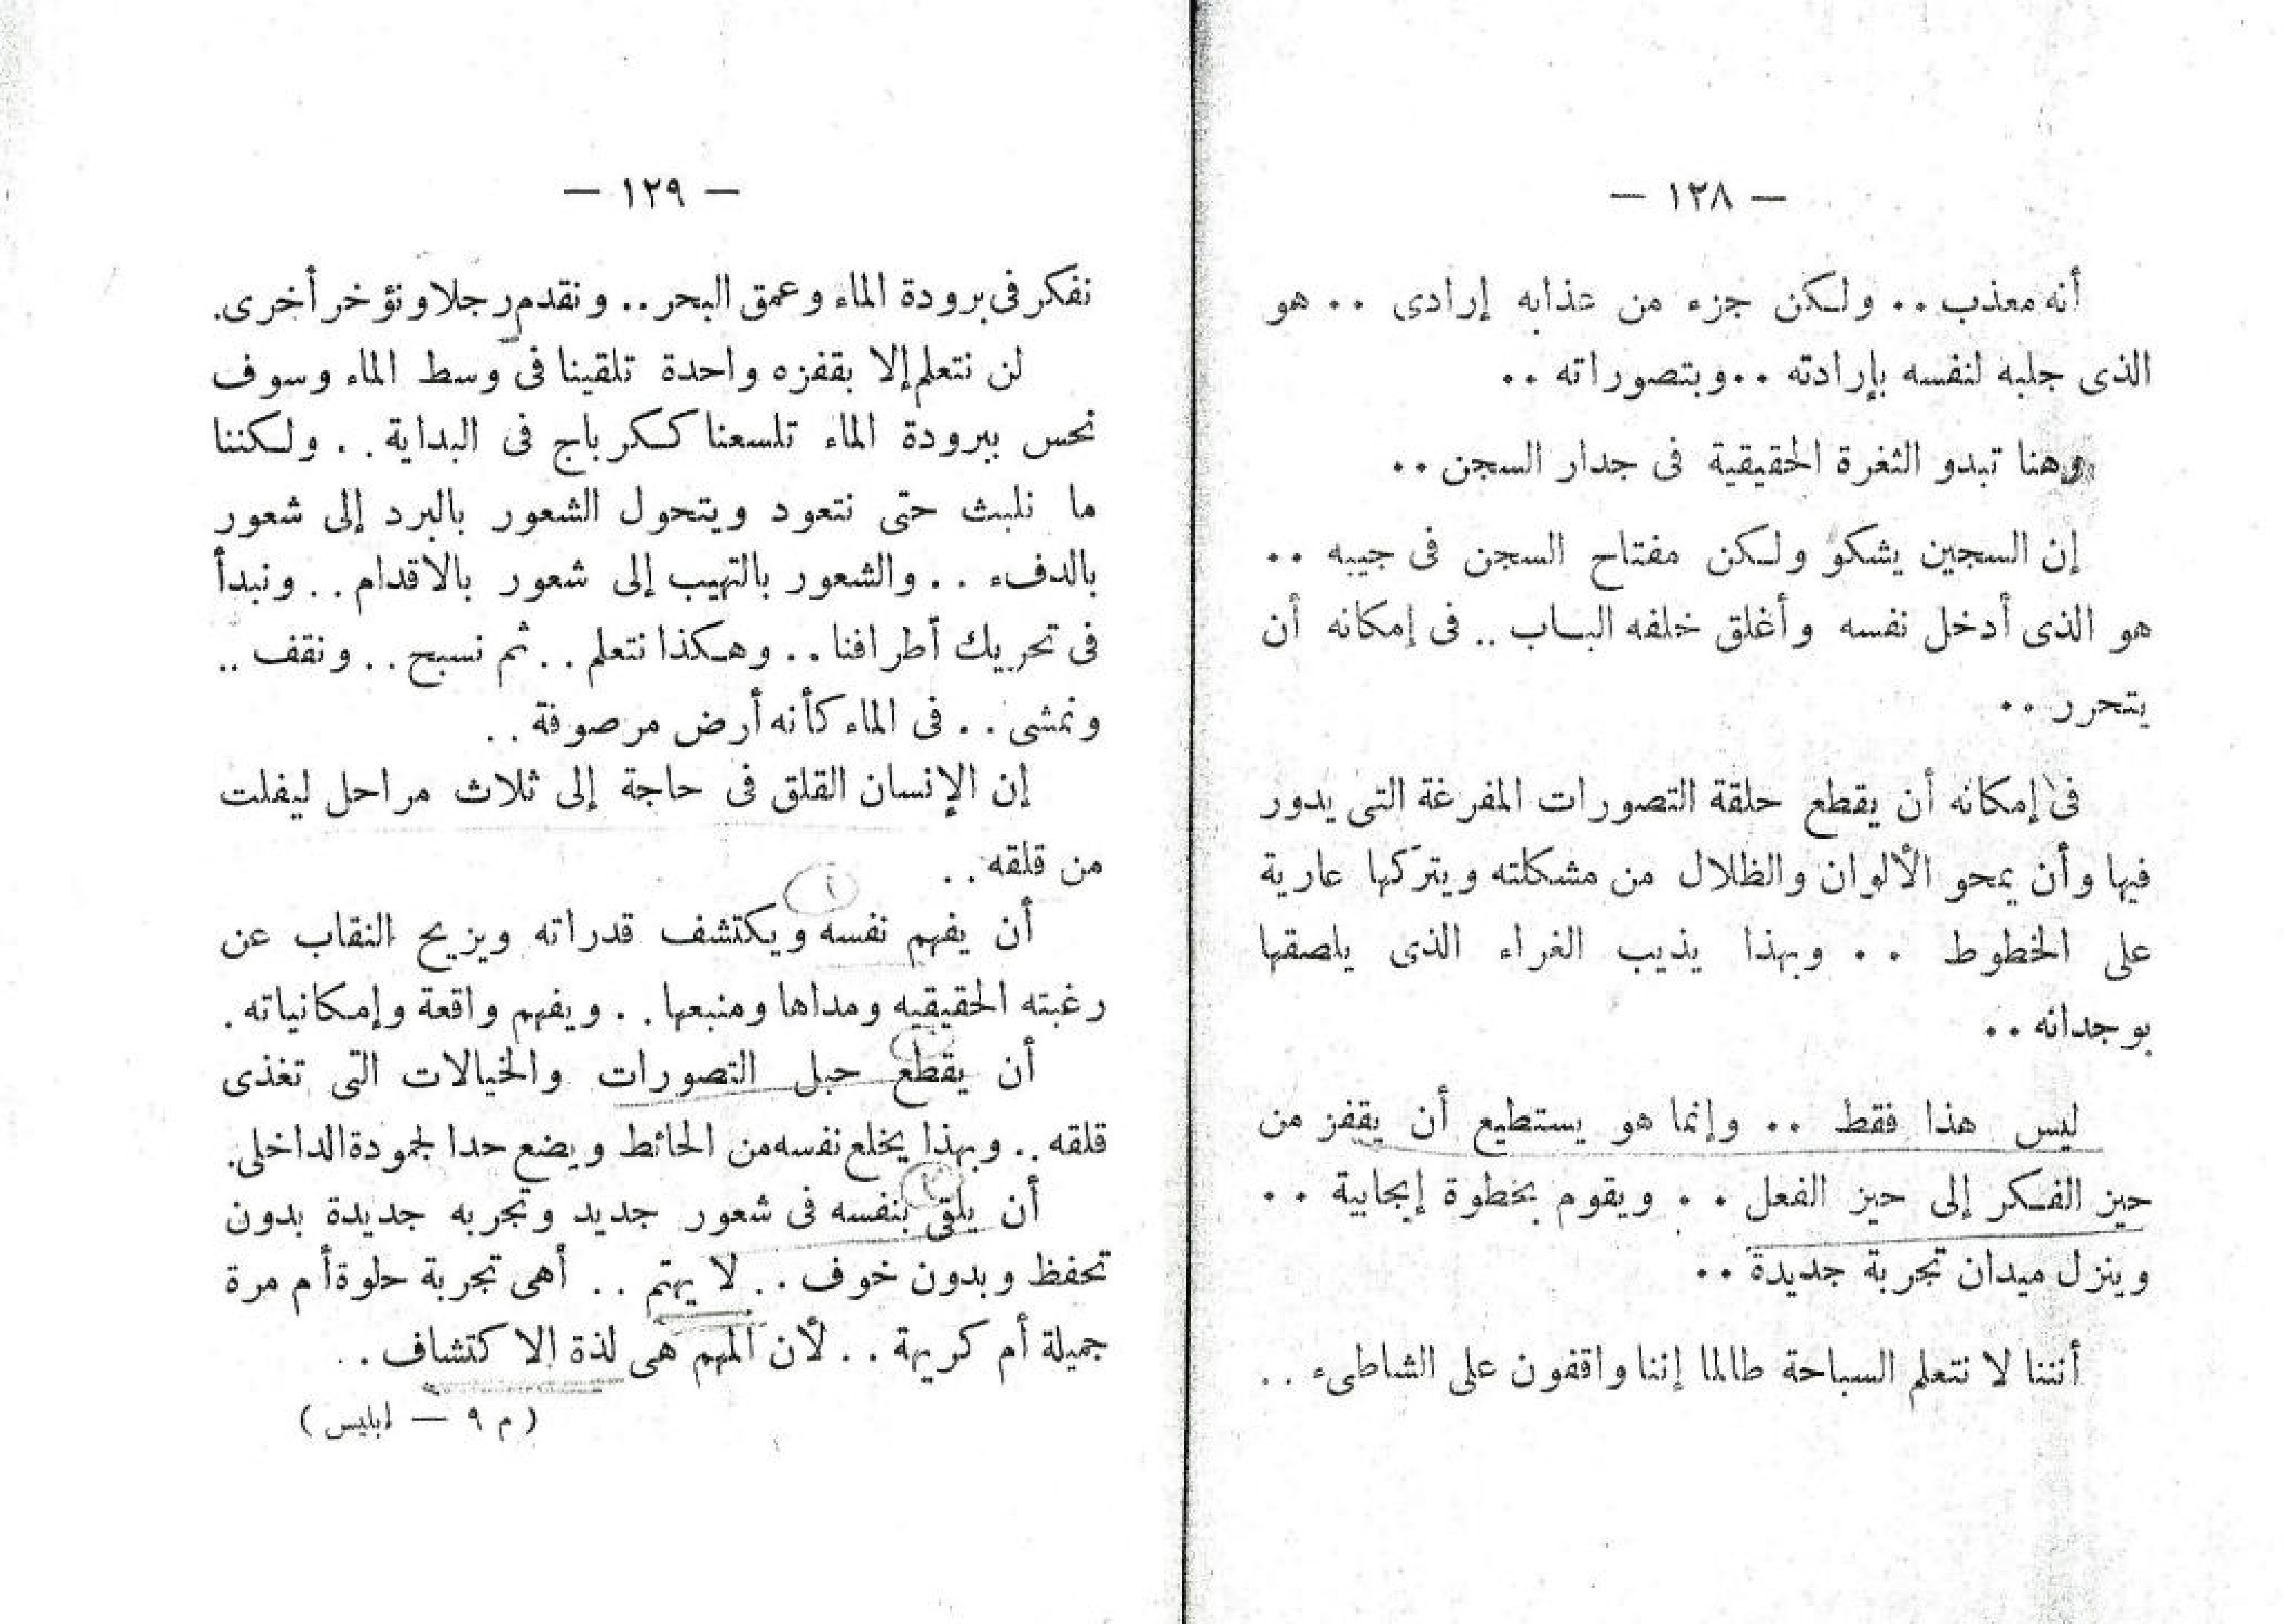 — ١٢٨ —
أنه معذب .. ولكن جزء من عذابه إرادى .. هو
الذى جلبه لنفسه بإرادته .. وبتصوراته ..
وهنا تبدو الثغرة الحقيقية فى جدار السجن ..
إن السجين يشكو ولكن مفتاح السجن فى جيبه ..
هو الذى أدخل نفسه وأغلق خلفه الباب .. فى إمكانه أن
يتحرر ..
فى إمكانه أن يقطع حلقة التصورات المفرغة التى يدور
فيها وأن يمحو الألوان والظلال من مشكلته ويتركها عارية
على الخطوط .. وبهذا يذيب الغراء الذى يلصقها
بوجدانه ..
ليس هذا فقط .. وإنما هو يستطيع أن يقفز من
حيز الفكر إلى حيز الفعل .. ويقوم بخطوة إيجابية ..
وينزل ميدان تجربة جديدة ..
أننا لا نتعلم السباحة طالما إننا واقفون على الشاطىء ..
— ١٢٩ —
نفكر فى برودة الماء وعمق البحر .. ونقدم رجلا ونؤخر أخرى.
لن نتعلم إلا بقفزه واحدة تلقينا فى وسط الماء وسوف
نحس ببرودة الماء تلسعنا ككرباج فى البداية .. ولكننا
ما نلبث حتى نتعود ويتحول الشعور بالبرد إلى شعور
بالدفء .. والشعور بالتهيب إلى شعور بالاقدام .. ونبدأ
فى تحريك أطرافنا .. وهكذا نتعلم .. ثم نسبح .. ونقف ..
ونمشى .. فى الماء كأنه أرض مرصوفة ..
إن الإنسان القلق فى حاجة إلى ثلاث مراحل ليفلت
من قلقه ..
١
أن يفهم نفسه ويكتشف قدراته ويزيح النقاب عن
رغبته الحقيقيه ومداها ومنبعها .. ويفهم واقعة وإمكانياته .
٢
أن يقطع حبل التصورات والخيالات التى تغذى
قلقه .. وبهذا يخلع نفسه من الحائط ويضع حدا لجمودة الداخلى.
٣
أن يلقى بنفسه فى شعور جديد وتجربه جديدة بدون
تحفظ وبدون خوف .. لا يهتم .. أهى تجربة حلوة أم مرة
جميلة أم كريهة .. لأن المهم هى لذة الاكتشاف ..
( م ٩ — إبليس )